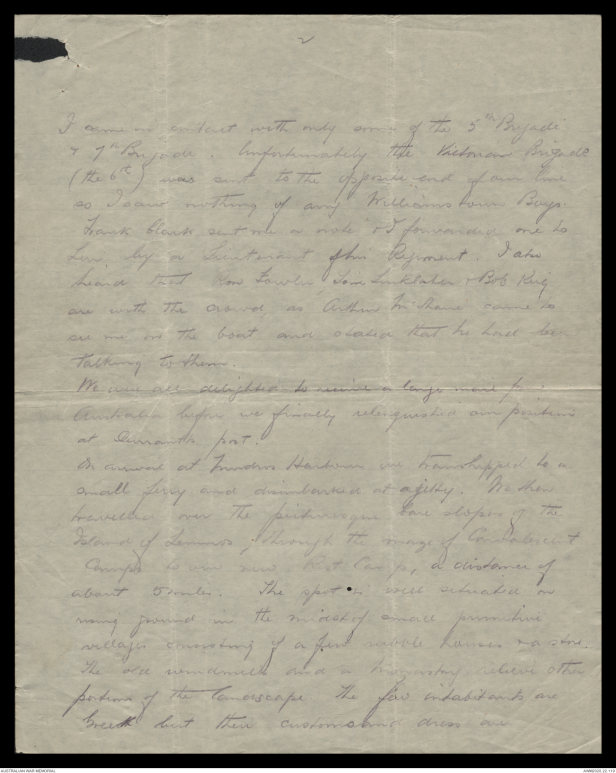 2
I came in contact with only some of the 5th Brigade
& 7th Brigade. Unfortunately the Victorian Brigade
(the 6th) was sent to the opposite end of our line
so I saw nothing of any Williamstown Boys.
Frank Clark sent me a note & I forwarded one to
by a Lieutenant of his Regiment. I also
heard that Fowler, Tom & Bob King
are with the crowd as Arthur McShane came to
see me on the boat and stated that he had been
talking to them.
We are all delighted to receive a large mail
Australia before we finally relinquished our positions
at Courtney's post.
On arrival at Mudros Harbour we transhipped to a
small ferry and disembarked at a jetty. We then
travelled over the picturesque bare slopes of the
Island of Lemnos, through the maze of Convalescent
Camps to our new Rest Camp, a distance of
about 5 miles. The spot is well situated on
rising ground in the midst of small primitive
villages consisting of a few rubble houses & a store.
The old windmills and a monastry relieve other
portions of the landscape The few inhabitants are
Greek but their customs and dress are
AUSTRALIAN WAR MEMORIAL